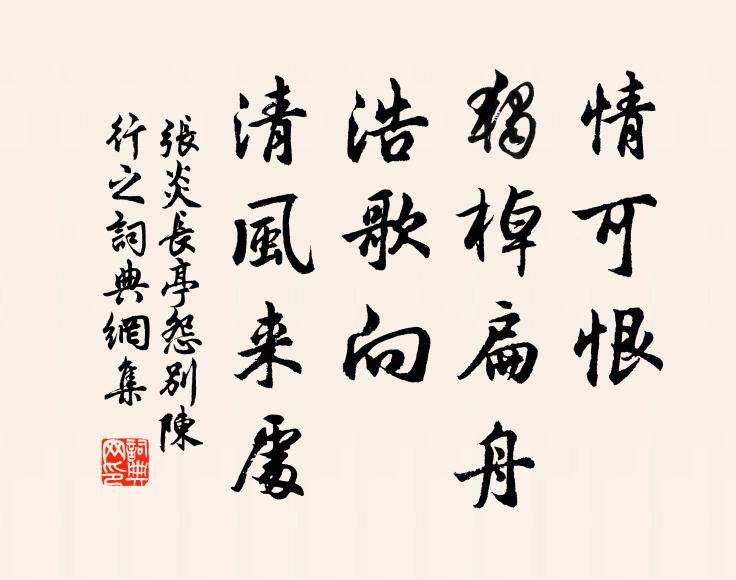 情可恨
獨棹扁舟
浩歌向
清風来處
張炎長亭怨別陳
行之詞典網集
詞典
网印